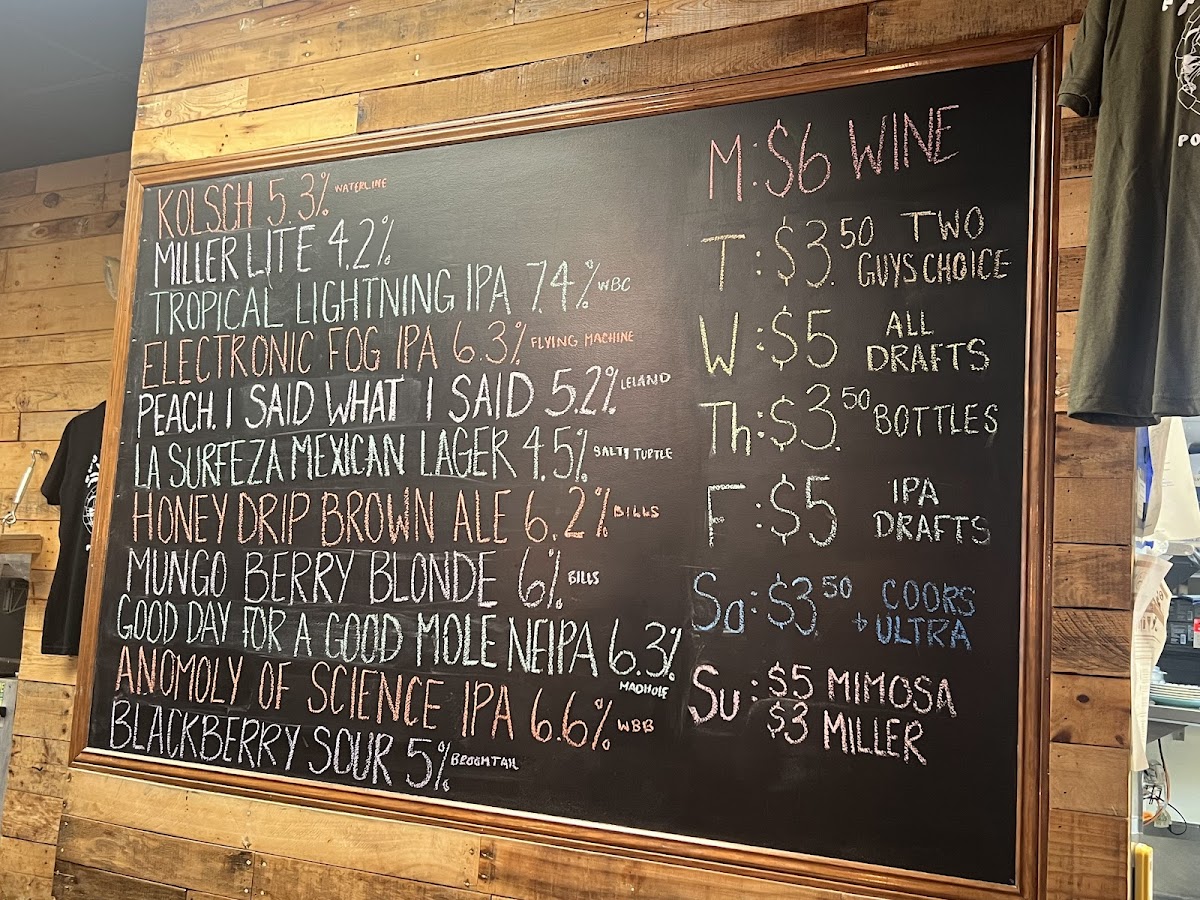 KOLSCH 5.3% WATERLINE
MILLER LITE 4.2%
TROPICAL LIGHTNING IPA 7.4% WBC
ELECTRONIC FOG IPA 6.3% FLYING MACHINE
PEACH. I SAID WHAT I SAID 5.2% LELAND
LA SURFEZA MEXICAN LAGER 4.5% SALTY TURTLE
HONEY DRIP BROWN ALE 6.2% BILLS
MUNGO BERRY BLONDE 6% BILLS
GOOD DAY FOR A GOOD MOLE NEIPA 6.3%
MADHOLE
ANOMOLY OF SCIENCE IPA 6.6% WBB
BLACKBERRY SOUR 5% BROOMTAIL
M: $6 WINE
T: $3.50 TWO
GUYS CHOICE
W: $5 ALL
DRAFTS
Th: $3.50 BOTTLES
F: $5 IPA
DRAFTS
Sa: $3.50 COORS
+ ULTRA
Su: $5 MIMOSA
$3 MILLER